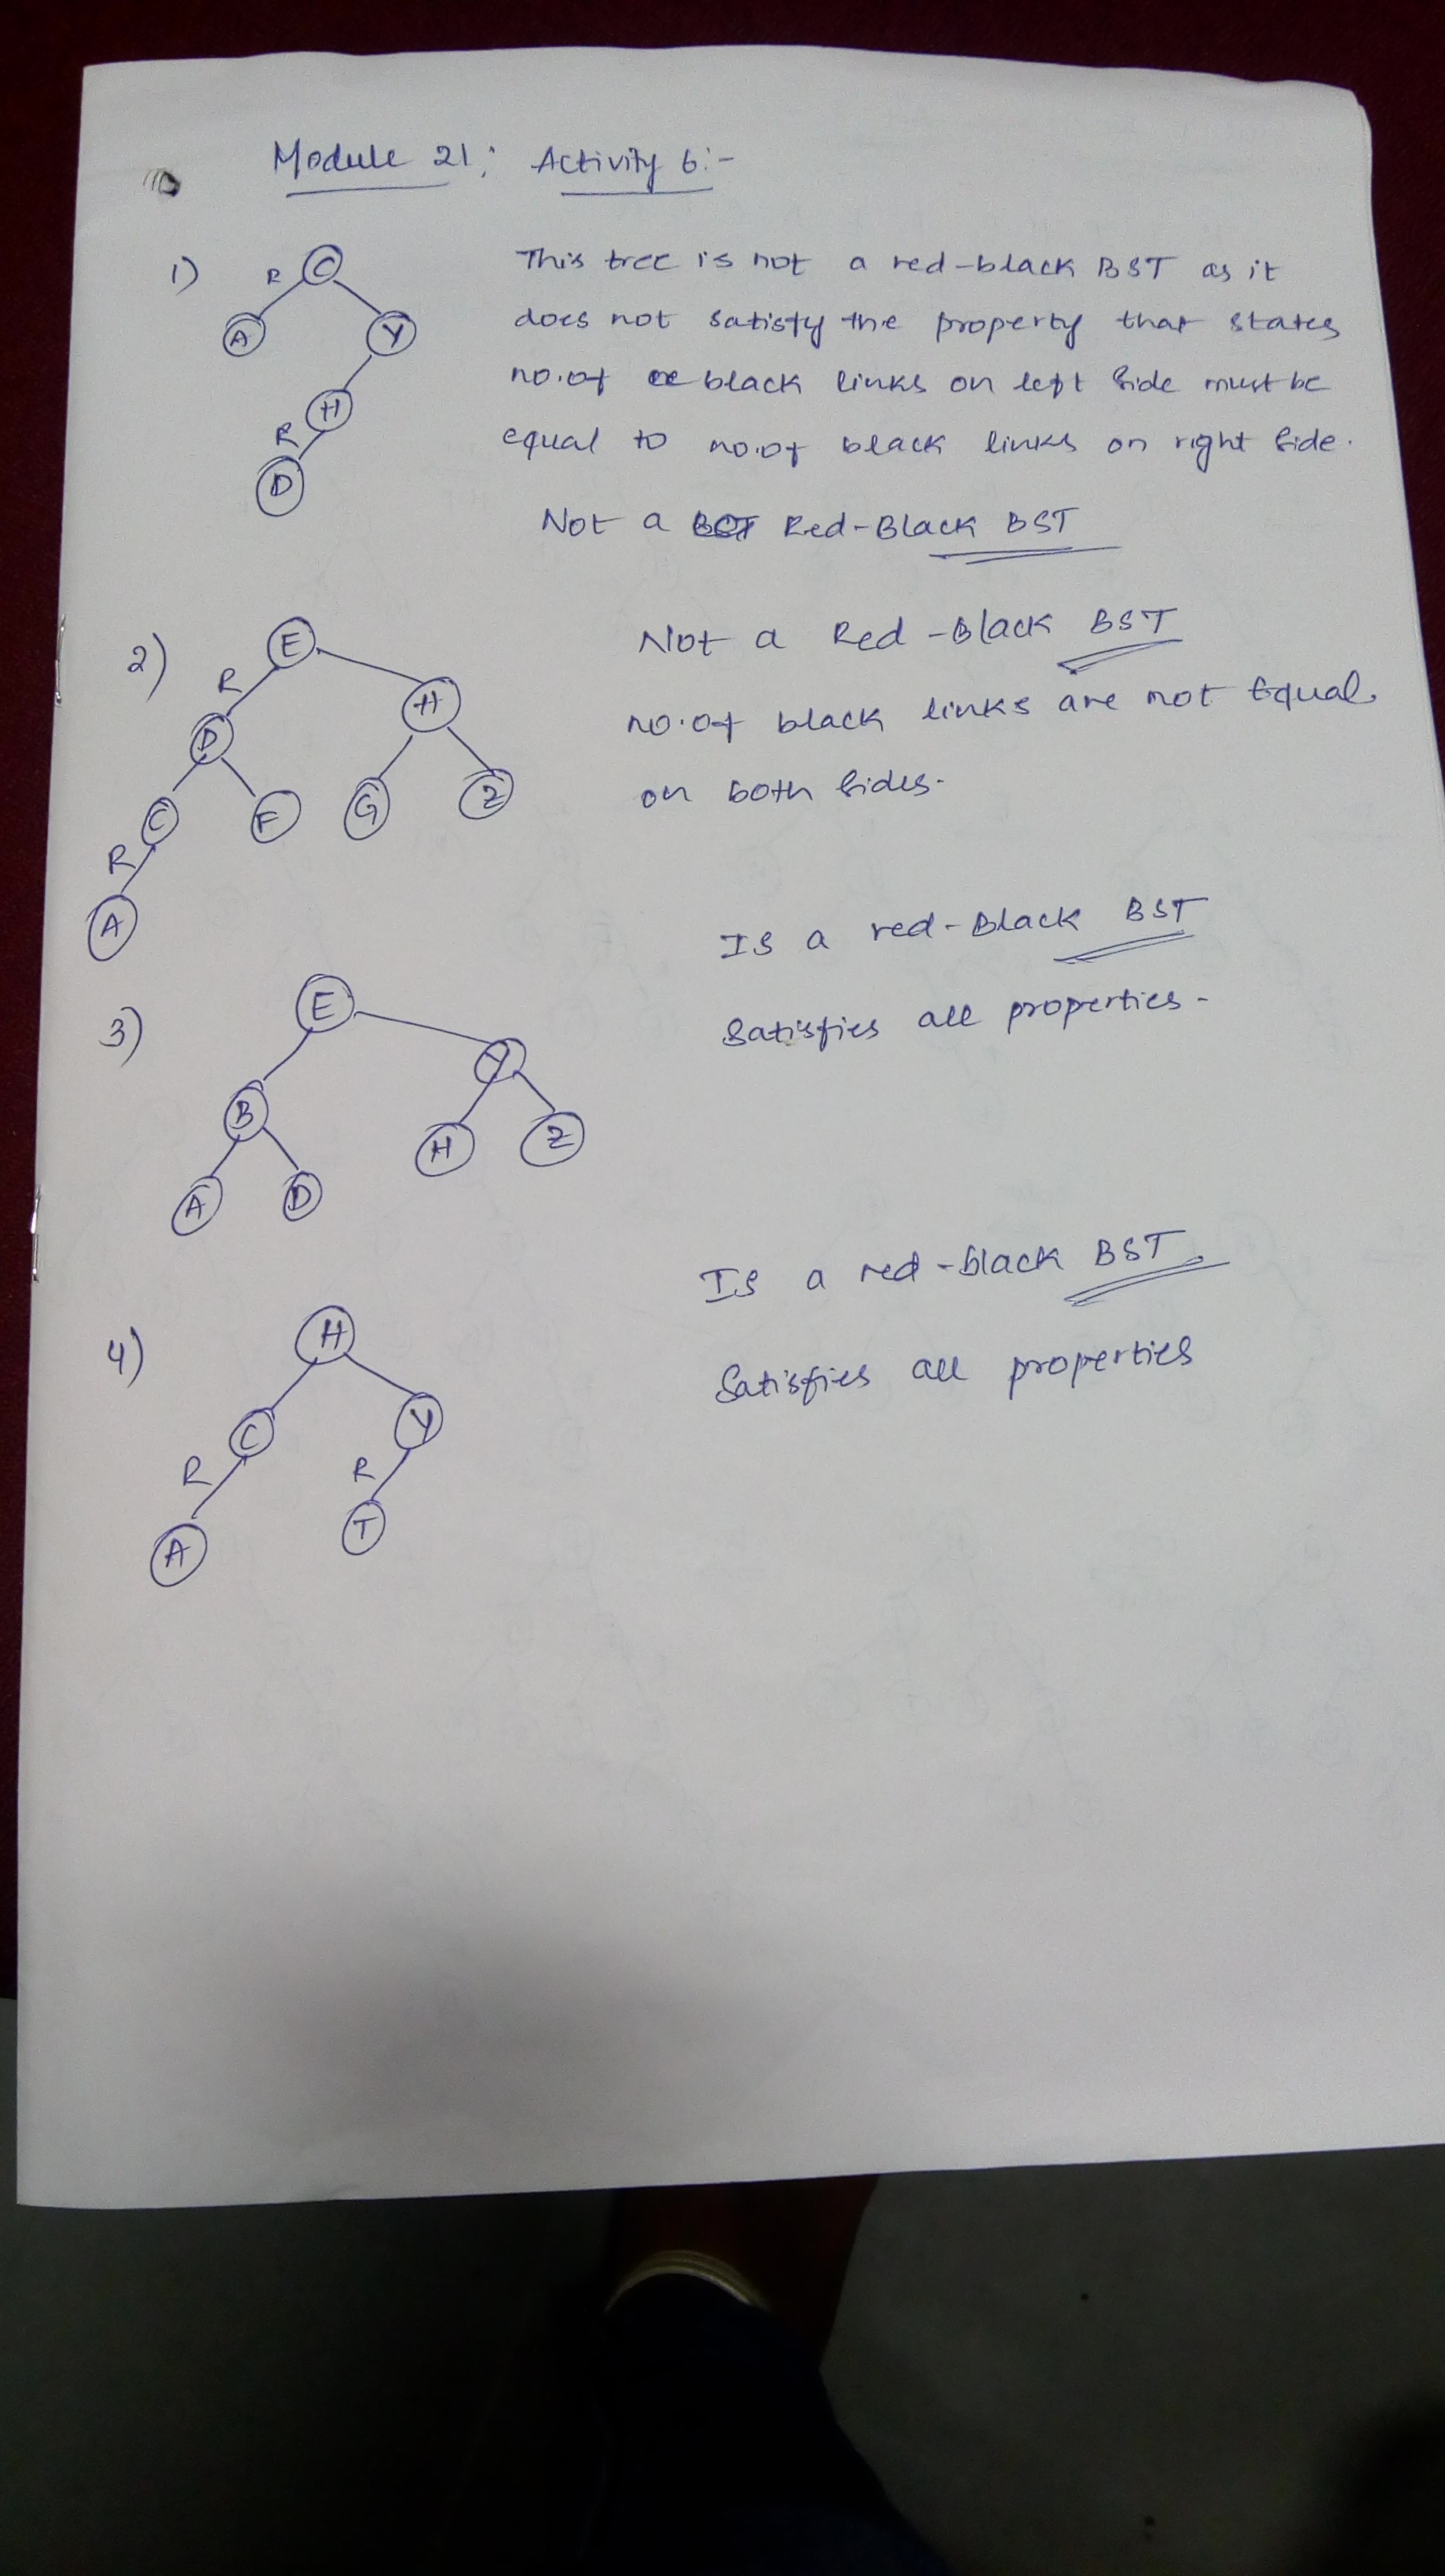 Module 21: Activity 6:-
1)
C
R
A
Y
H
R
D
This tree is not a red-black BST as it
does not satisfy the property that states
no.of black links on left side must be
equal to no.of black links on right side.
Not a Red-Black BST
2)
E
R
D
H
C
F
G
Z
R
A
Not a Red-Black BST
no.of black links are not Equal
on both sides.
3)
E
B
Y
A
D
H
Z
Is a red-Black BST
Satisfies all properties.
4)
H
C
Y
R
R
A
T
Is a red-black BST.
Satisfies all properties